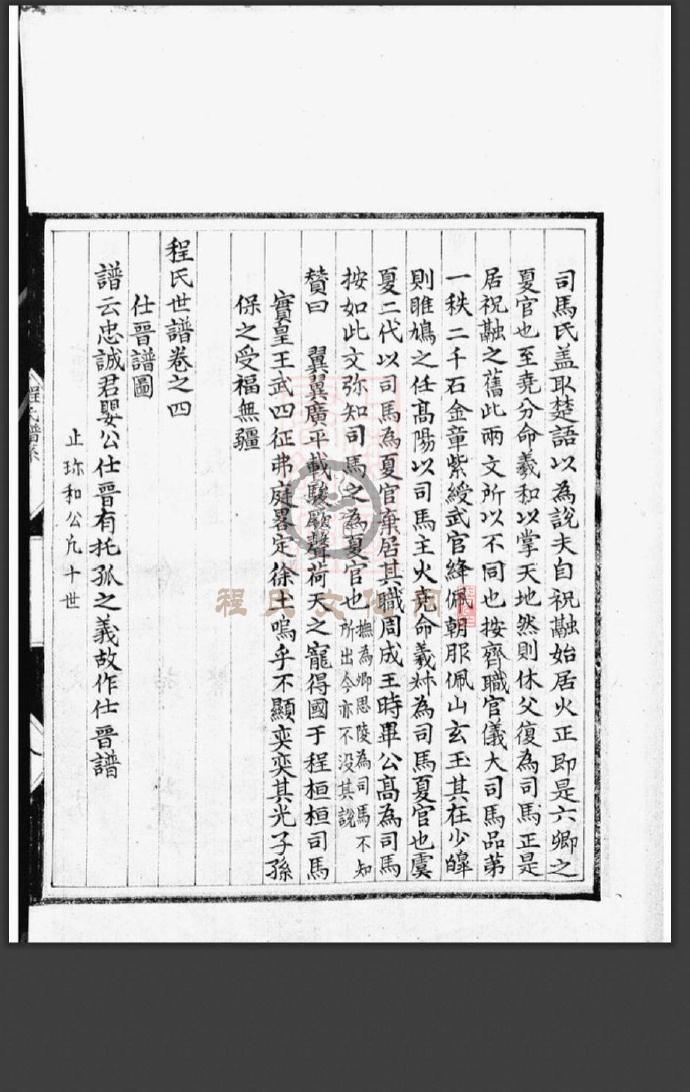 司馬氏盖取楚語以為說夫自祝融始居火正即是六卿之
夏官也至堯分命羲和以掌天地然則休父復為司馬正是
居祝融之舊此兩文所以不同也按齊職官儀大司馬品第
一秩二千石金章紫綬武官絳佩朝服佩山玄玉其在少皥
則雎鳩之任高陽以司馬主火堯命羲叔為司馬夏官也虞
夏二代以司馬為夏官棄居其職周成王時畢公高為司馬
按如此文弥知司馬之為夏官也
撫為卿思陵為司馬不知
所出今亦不沒其說
贊曰 翼翼廣平載駿厥聲荷天之寵得國于程桓桓司馬
實皇王武四征弗庭畧定徐土嗚乎不顯奕奕其光子孫
保之受福無疆
程氏世譜卷之四
仕晉譜圖
譜云忠誠君嬰公仕晉有托孤之義故作仕晉譜
止珎和公凡十世
程氏譜系
程氏文化網